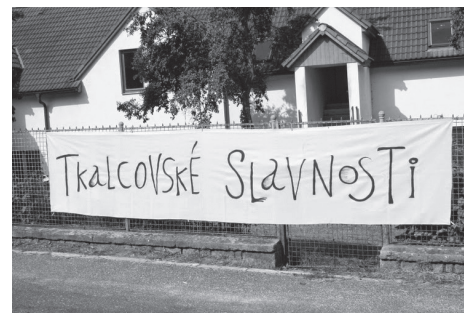 TkalcovSKÉ SLaVNoSTi